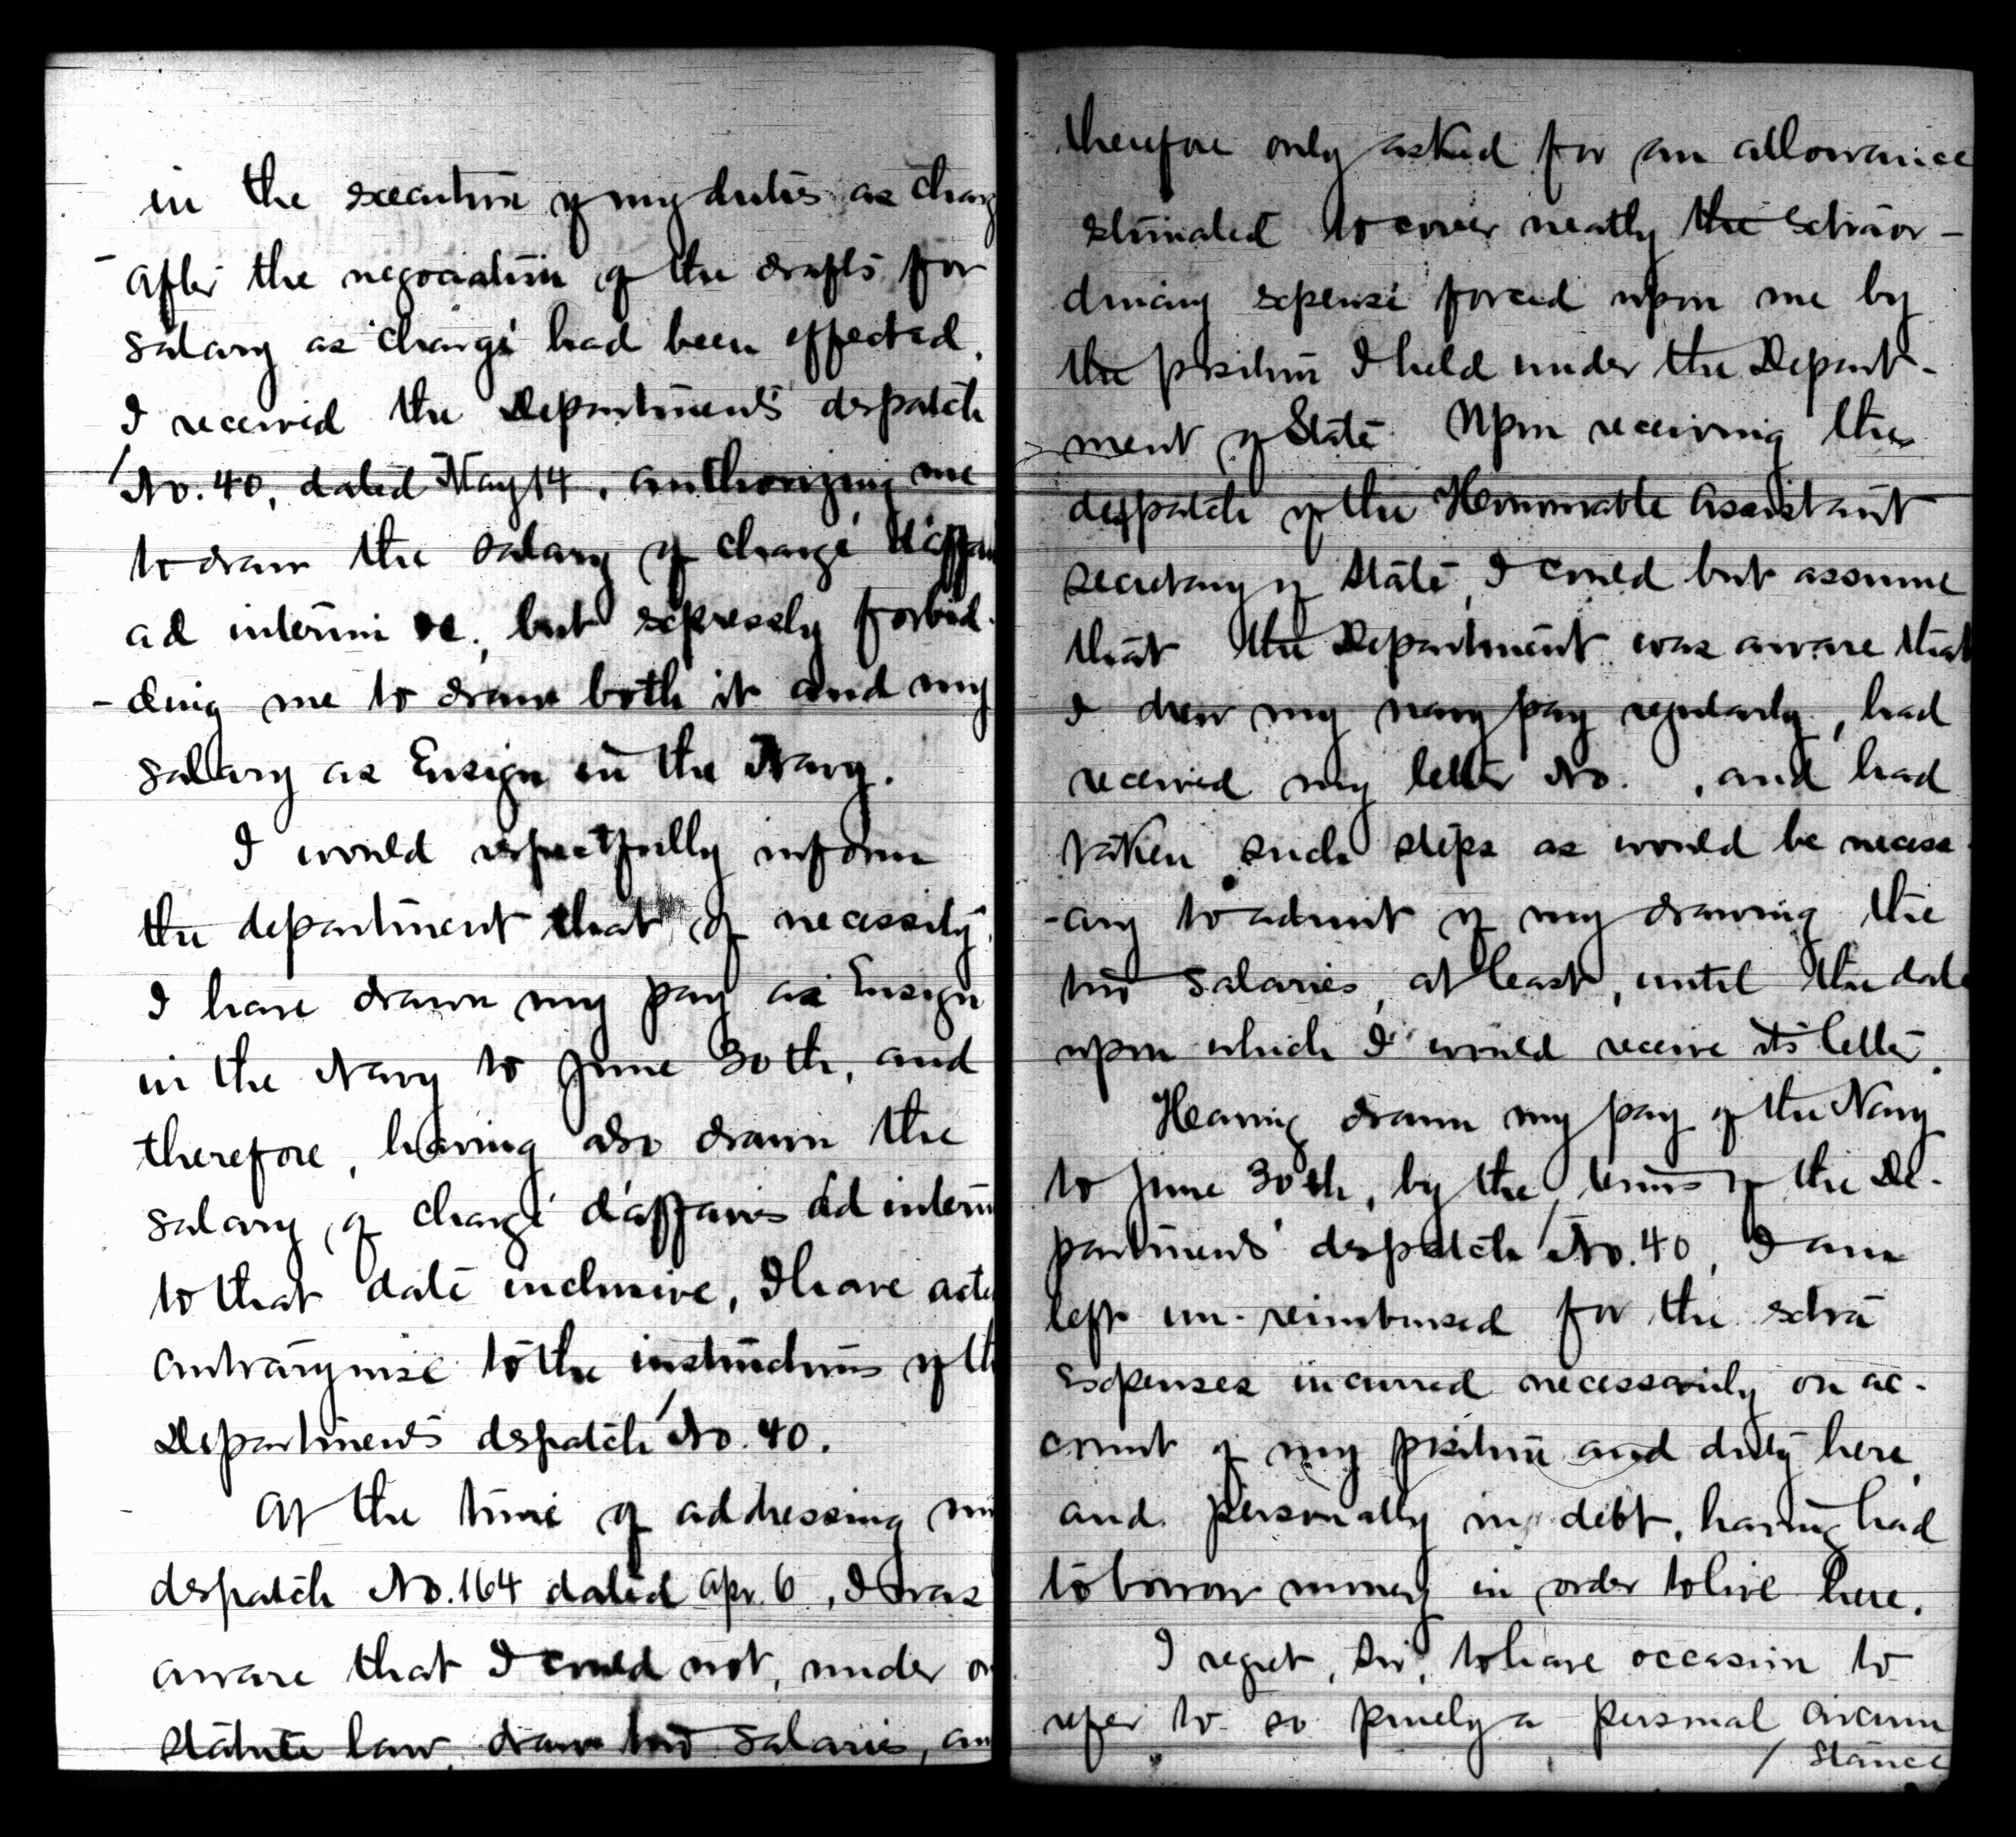 in the execution of my duties as charg
After the negociation of the drafts for
salary as chargé had been effected,
I received the Department's despatch
No. 40, dated May 14, authorizing me
to draw the salary of chargé d'affai
ad interim &c., but expressly forbid-
-ding me to draw both it and my
salary as Ensign in the Navy.
I would respectfully inform
the department that of necessity,
I have drawn my pay as Ensign
in the Navy to June 30th, and
therefore, having also drawn the
salary of chargé d'affaires ad interim
to that date inclusive, I have acte
contrarywise to the instructions of th
Department's despatch No. 40.
At the time of addressing my
despatch No. 164 dated Apr. 6, I was
aware that I could not, under o
statute law draw two salaries, an
therefore only asked for an allowance
estimated to cover neatly the extraor-
dinary expense forced upon me by
the position I held under the Depart-
ment of State. Upon receiving the
despatch of the Honorable Assistant
Secretary of State, I could but assume
that the Department was aware that
I drew my navy pay regularly, had
received my letter No.   , and had
taken such steps as would be necess
-ary to admit of my drawing the
two salaries, at least, until the date
upon which I would receive its letter.
Having drawn my pay of the Navy
to June 30th, by the terms of the De-
partment's despatch No. 40, I am
left un-reimbursed for the extra
expenses incurred necessarily on ac-
count of my position and duty here,
and personally in debt, having had
to borrow money in order to live here.
I regret, Sir, to have occasion to
refer to so purely a personal circum
/ stance